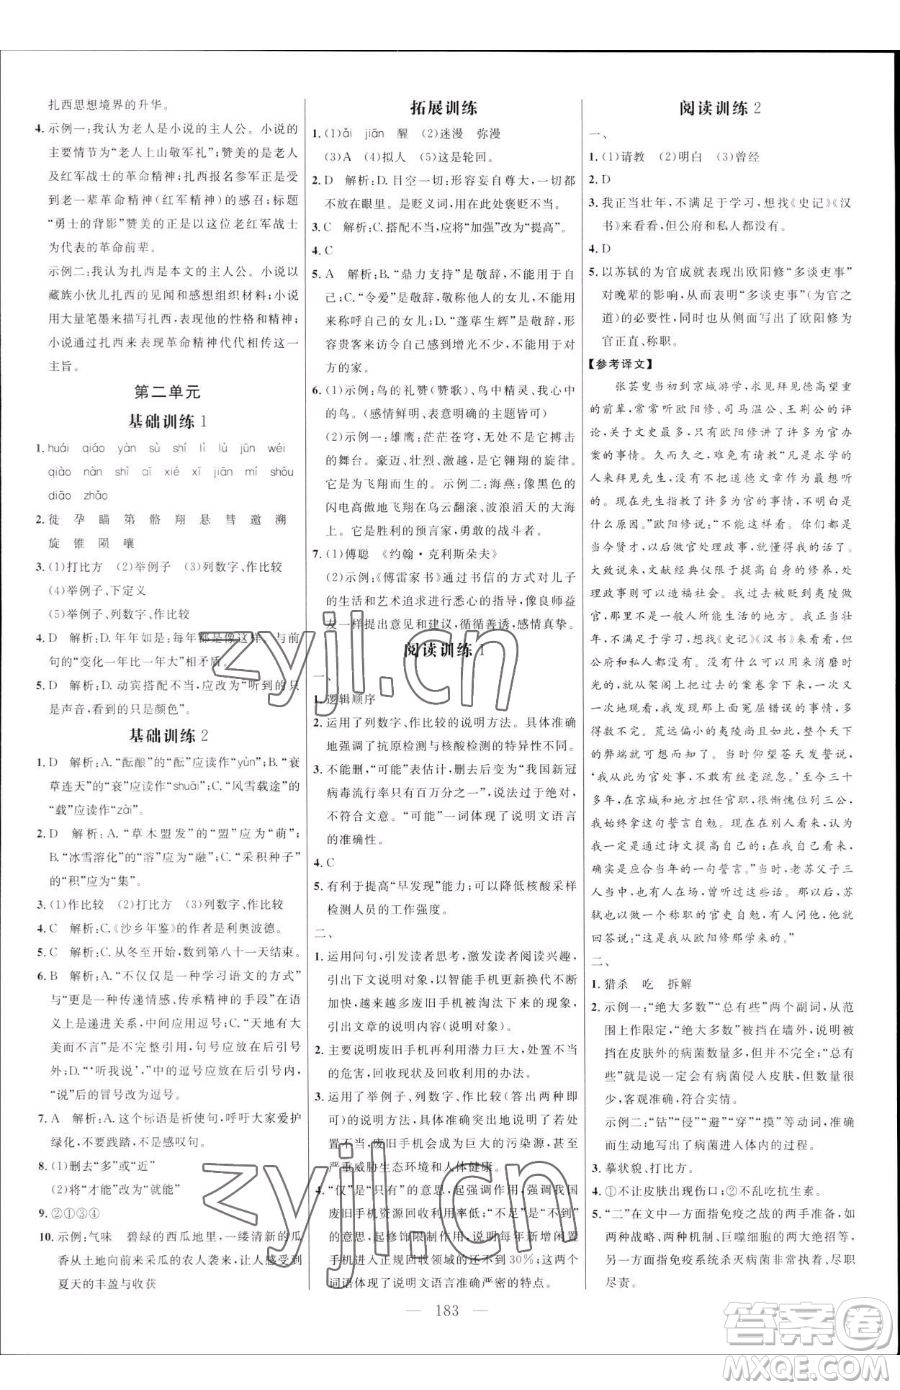 扎西思想境界的升华。
4. 示例一:我认为老人是小说的主人公。小说的
主要情节为“老人上山敬军礼”;赞美的是老人
及红军战士的革命精神;扎西报名参军是受到
老一辈革命精神(红军精神)的感召;标题
“勇士的背影”赞美的正是以这位老红军战士
为代表的革命前辈。
示例二:我认为扎西是本文的主人公。小说以
藏族小伙儿扎西的见闻和感想组织材料;小说
用大量笔墨描写扎西,表现他的性格和精神;
小说通过扎西来表现革命精神代代相传这一
主旨。
第二单元
基础训练 1
1. huái qiáo yàn sù shí lì lù jūn wéi
qiào nàn shí āi xié xī jiān mí shòu
diāo zhǎo
2. 徙 孕 瞄 第 骼 翔 悬 彗 邀 溯
旋 锥 陨 嚷
3. (1)打比方 (2)举例子 (3)列数字、作比较
(4)举例子、下定义
(5)举例子、列数字、作比较
4. D 解析:D. 年年如是:每年都是像这样,与前
句的“变化一年比一年大”相矛盾。
5. D 解析:D. 动宾搭配不当,应改为“听到的只
是声音,看到的只是颜色”。
基础训练 2
1. D 解析:A. “酝酿”的“酝”应读作“yùn”;B. “衰
草连天”的“衰”应读作“shuāi”;C. “风雪载途”的
“载”应读作“zài”。
2. D 解析:A. “草木盟发”的“盟”应为“萌”;
B. “冰雪溶化”的“溶”应为“融”;C. “采积种子”
的“积”应为“集”。
3. (1)作比较 (2)打比方 (3)列数字、作比较
4. C 解析:C. 《沙乡年鉴》的作者是利奥波德。
5. C 解析:C. 从冬至开始,数到第八十一天结束。
6. B 解析:A. “不仅仅是一种学习语文的方式”
与“更是一种传递情感,传承精神的手段”在语
义上是递进关系,中间应用逗号;C. “天地有大
美而不言”不是完整引用,句号应放在引号
外;D. “‘听我说’,”中的逗号应放在引号内,
“说”后的冒号改为逗号。
7. A 解析:A. 这个标语是祈使句,呼吁大家爱护
绿化,不要践踏,不是感叹句。
8. (1)删去“多”或“近”
(2)将“才能”改为“就能”
9. ②①③④
10. 示例:气味 碧绿的西瓜地里,一缕清新的瓜
香从土地向前来采瓜的农人袭来,让人感受到
夏天的丰盈与收获
拓展训练
1. (1)ǎi jiān 醒 (2)迷漫 弥漫
(3)A (4)拟人 (5)这是轮回。
2. D 解析:D. 目空一切:形容妄自尊大,一切都
不放在眼里。是贬义词,用在此处褒贬不当。
3. C 解析:C. 搭配不当,应将“加强”改为“提高”。
4. C
5. A 解析:B. “鼎力支持”是敬辞,不能用于自
己;C. “令爱”是敬辞,敬称他人的女儿,不能用
来称呼自己的女儿;D. “蓬荜生辉”是敬辞,形
容贵客来访令主人感到增光不少,不能用于到
别人家去。
6. (1)示例:鸟的礼赞(赞歌)、鸟中精灵、我心中
的鸟。(感情鲜明、表现明确的主题皆可)
(2)示例一:雄鹰;茫茫苍穹,无尽高天,是搏击
的舞台。豪迈、壮烈、激越,是它翱翔的风采。
它是为飞翔而生的。示例二:海燕;像黑色的
闪电高傲地飞翔在乌云翻滚、波浪滔天的大海
上。它是胜利的预言家,勇敢的战斗者。
7. (1)傅聪 《约翰·克利斯朵夫》
(2)示例:《傅雷家书》通过书信的方式对儿子
的生活和艺术追求进行悉心的指导,像良师益
友一样提出意见和建议,循循善诱,感情真挚。
阅读训练 1
一、
1. 逻辑顺序
2. 运用了列数字、作比较的说明方法。具体准确
地强调了抗原检测与核酸检测的特异性不同。
3. 不能删,“可能”表估计,删去后就是“我国新冠
病毒流行率只有百万分之一”,说法过于绝对,
不符合文意。“可能”一词体现了说明文语言
的准确性。
4. C
5. 有利于提高“早发现”能力;可以降低核酸采样
检测人员的工作强度。
二、
1. 运用问句,引发读者思考,激发读者阅读兴趣,
引出下文说明对象;以智能手机更新换代不断
加快,越来越多废旧手机被淘汰了的现象,
引出文章的说明内容(说明对象)。
2. 主要说明废旧手机再利用潜力巨大,处置不当
的危害,回收现状及回收利用的方法。
3. 运用了举例子、列数字、作比较(答出两种即
可)的说明方法,准确具体地突出地说明了如
果处置不当,废旧手机会成为巨大的污染源,甚至
严重威胁生态环境和人体健康。
4. “仅”是“只有”的意思,起强调作用,强调我国
废旧手机资源回收利用率低;“不足”是“不到”
的意思,起修饰限制作用,与两年新增闲置
手机进入正规回收领域的还不到30%;这两个
词语体现了说明文语言准确严密的特点。
阅读训练 2
一、
1. (1)请教 (2)明白 (3)曾经
2. D
3. 我正当壮年,不满足于学习,想找《史记》《汉
书》来看看,但公府和私人都没有。
4. D
5. 以苏轼的为官成就表现出欧阳修“多谈吏事”
对晚辈的影响,从而表明“多谈吏事”(为官之
道)的必要性,同时侧面写出了欧阳修为
官正直、称职。
【参考译文】
张芸叟当初到京城游学,求见拜见德高望重
的前辈,常常听欧阳修、司马温公、王荆公的评
论,关于文史最多,只有欧阳修,多谈为官办
案的事情。久而久之,难免有请教“凡是求学的
人来拜见先生,没有不因道德文章作为最想听
的。现在先生指教人的多是为官的事情,不明白
什么原因。”欧阳修说:“不能这样看。你们都是
当今贤才,以后做官处理政事,就应当知道这些。
大致说来,文献经典仅限于自身的修养,处理
政事则可以造福百姓。我以前被贬官到夷陵做
官,不是一般人能够生活的地方。我正当壮年,
不满足于学习,想找《史记》《汉书》来看看,但
公府和私人都没有。没有什么办法来打发时
光,就从架阁上拿陈旧的案卷反复观看,
发现里面冤屈错误的事情,多得
数不胜数。荒远偏小的夷陵尚且如此,整个天下
的弊端就可想而知了。当时仰望苍天发誓
说:‘自此处理政事不敢有丝毫疏忽。’至今三十多
年,在京城和地方担任官职,很惭愧位列三司,
我始终拿这句誓言自勉。现在以人们看来,我
一定是通过诗文提高名望而做到这个位置,但我
确实是应合当年的一句誓言。”当时,老苏父子三
人当中,也曾听过这些话。那以后,苏
轼也以一个称职的官吏自勉,他曾经对人
说:“这是我从欧阳修那学来的。”
二、
1. 猎杀 吃 拆解
2. 示例一:“绝大多数”“总有些”两个副词,从范
围上作限定,“绝大多数”被挡在墙外,说明了
阻挡在皮肤外的病菌数量多;“总有
些”说明了只是少数病菌侵入皮肤。二者表述
客观准确,符合实情。
示例二:“钻”“侵”“避”“穿”“摸”等动词,准确
而生动地写出了病菌入人体内的过程。
3. 摹状貌,打比方。
4. ①不让皮肤出现伤口;②不乱吃抗生素。
5. “二”在文中一方面指免疫之战的两手准备,如
两种战略、两种疫苗、巨噬细胞的两大绝招等,
另一方面指免疫系统杀灭病菌非常执着、尽职
尽责。
183
zyjl.cn
zyjl.cn
答案圈
MXQE.COM